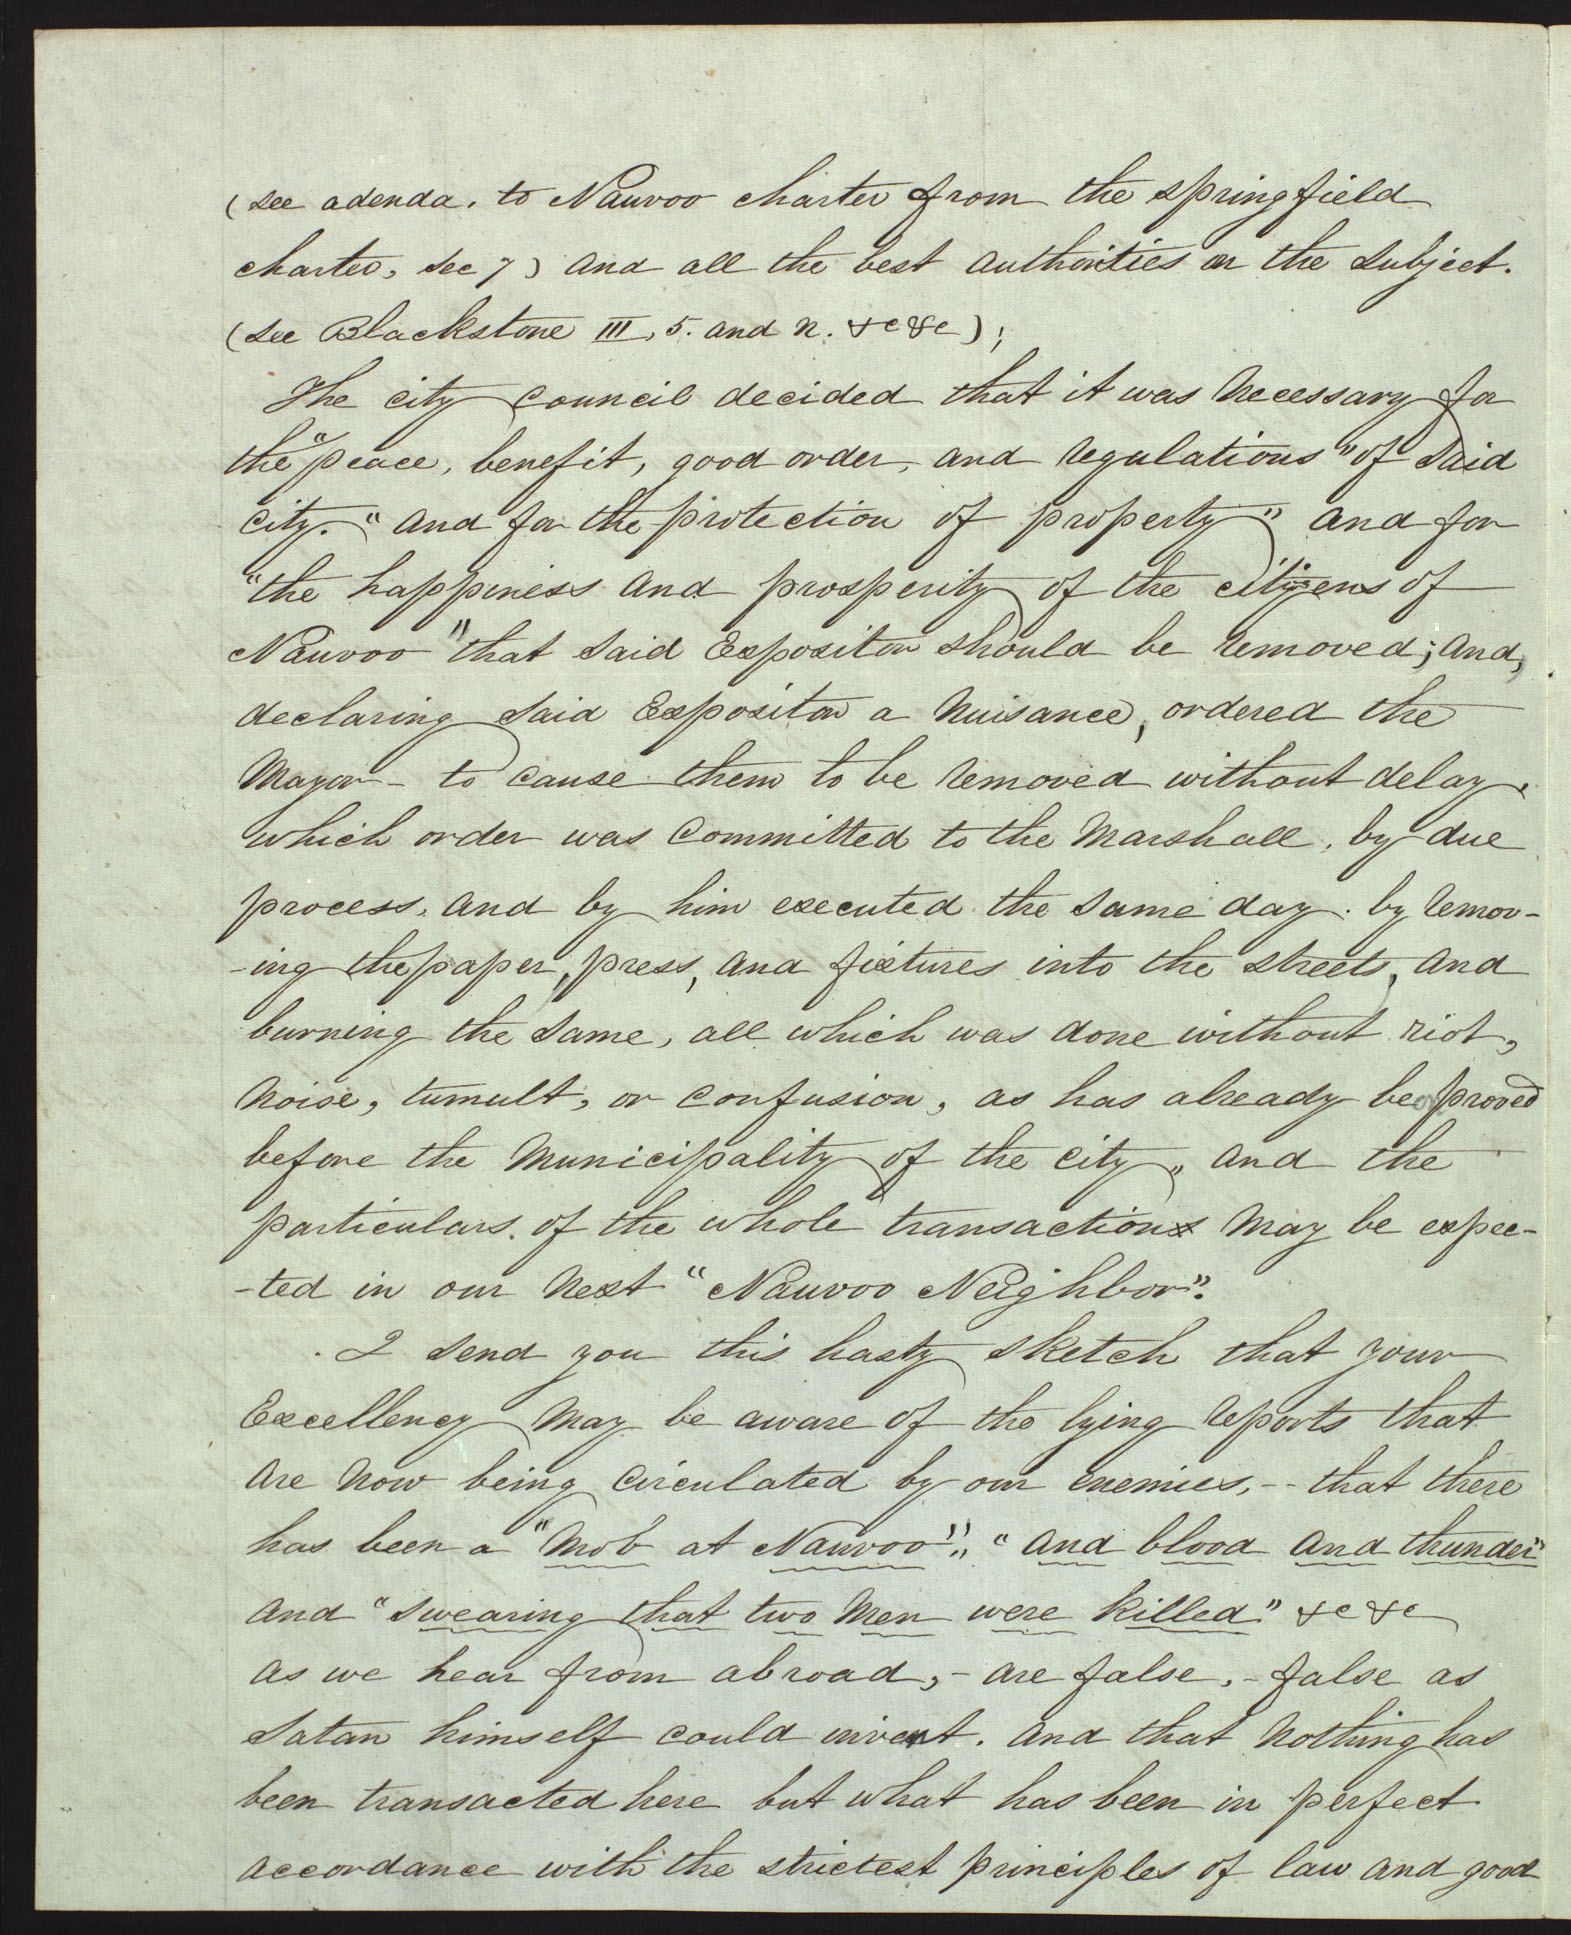 (see adenda. to Nauvoo charter from the springfield
charter, sec 7) and all the best authorities on the subject.
(see Blackstone III, 5. and n. &c &c);
The city council decided that it was necessary for
the "peace, benefit, good order, and regulations" of said
city. "and for the protection of property" and for
"the happiness and prosperity of the citizens of
Nauvoo" that said Expositor should be removed; and,
declaring said Expositor a nuisance, ordered the
Mayor - to cause them to be removed without delay,
which order was committed to the Marshall, by due
process, and by him executed the same day. by remov-
-ing the paper, press, and fixtures into the streets, and
burning the same, all which was done without riot,
noise, tumult, or confusion, as has already be proved
before the municipality of the city, and the
particulars. of the whole transactions may be expec-
-ted in our next "Nauvoo Neighbor".
I send you this hasty sketch that your
Excellency may be aware of the lying reports that
are now being circulated by our enemies, -- that there
has been a "mob at Nauvoo", "and blood and thunder"
and "swearing that two men were killed." &c &c
as we hear from abroad, - are false, - false as
Satan himself could invent. and that nothing has
been transacted here but what has been in perfect
accordance with the strictest principles of law and good